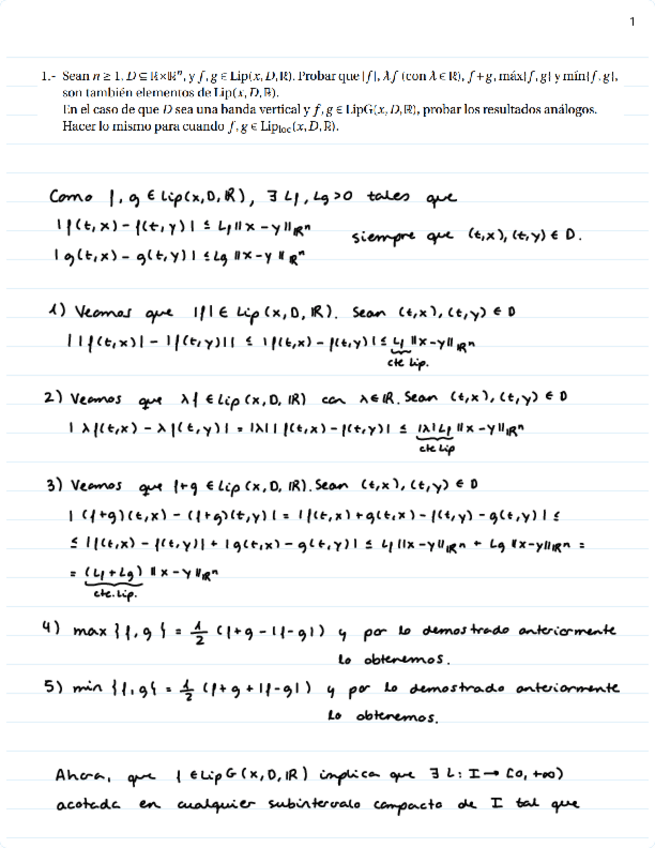 1
1.- Sean n ≥ 1, D ⊆ ℝ×ℝⁿ, y f, g ∈ Lip(x, D, ℝ). Probar que |f|, λf (con λ ∈ ℝ), f + g, máx{f, g} y mín{f, g},
son también elementos de Lip(x, D, ℝ).
En el caso de que D sea una banda vertical y f, g ∈ LipG(x, D, ℝ), probar los resultados análogos.
Hacer lo mismo para cuando f, g ∈ Lip_loc(x, D, ℝ).
Como f, g ∈ Lip(x, D, ℝ), ∃ Lf, Lg > 0 tales que
|f(t,x) - f(t,y)| ≤ Lf ||x-y||ℝⁿ
siempre que (t,x), (t,y) ∈ D.
|g(t,x) - g(t,y)| ≤ Lg ||x-y||ℝⁿ
1) Veamos que |f| ∈ Lip(x, D, ℝ). Sean (t,x), (t,y) ∈ D
||f(t,x)| - |f(t,y)|| ≤ |f(t,x) - f(t,y)| ≤ Lf ||x-y||ℝⁿ
cte Lip.
2) Veamos que λf ∈ Lip(x, D, ℝ) con λ∈ℝ. Sean (t,x), (t,y) ∈ D
|λf(t,x) - λf(t,y)| = |λ| |f(t,x) - f(t,y)| ≤ |λ|Lf ||x-y||ℝⁿ
cte Lip
3) Veamos que f+g ∈ Lip(x, D, ℝ). Sean (t,x), (t,y) ∈ D
|(f+g)(t,x) - (f+g)(t,y)| = |f(t,x) + g(t,x) - f(t,y) - g(t,y)| ≤
≤ |f(t,x) - f(t,y)| + |g(t,x) - g(t,y)| ≤ Lf ||x-y||ℝⁿ + Lg ||x-y||ℝⁿ =
= (Lf + Lg) ||x-y||ℝⁿ
cte. Lip.
4) max {f, g} = 1/2 (f+g - |f-g|) y por lo demostrado anteriormente
lo obtenemos.
5) min {f, g} = 1/2 (f+g + |f-g|) y por lo demostrado anteriormente
lo obtenemos.
Ahora, que f ∈ LipG(x, D, ℝ) implica que ∃ L: I → [0, +∞)
acotada en cualquier subintervalo compacto de I tal que